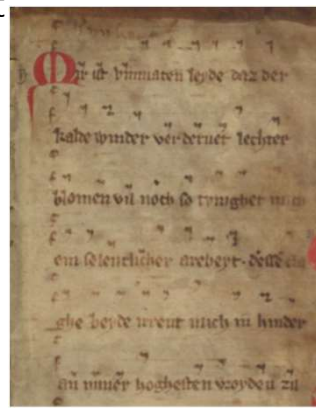 Mir ist vnmaten leyde daz der
kalde wynder verderuet lechter
blomen vil noch so twinghet mich
ein senentlicher arebeyt. desse
ghe beyde urent mich in hinder
an mmer hoghesten vroyden zu